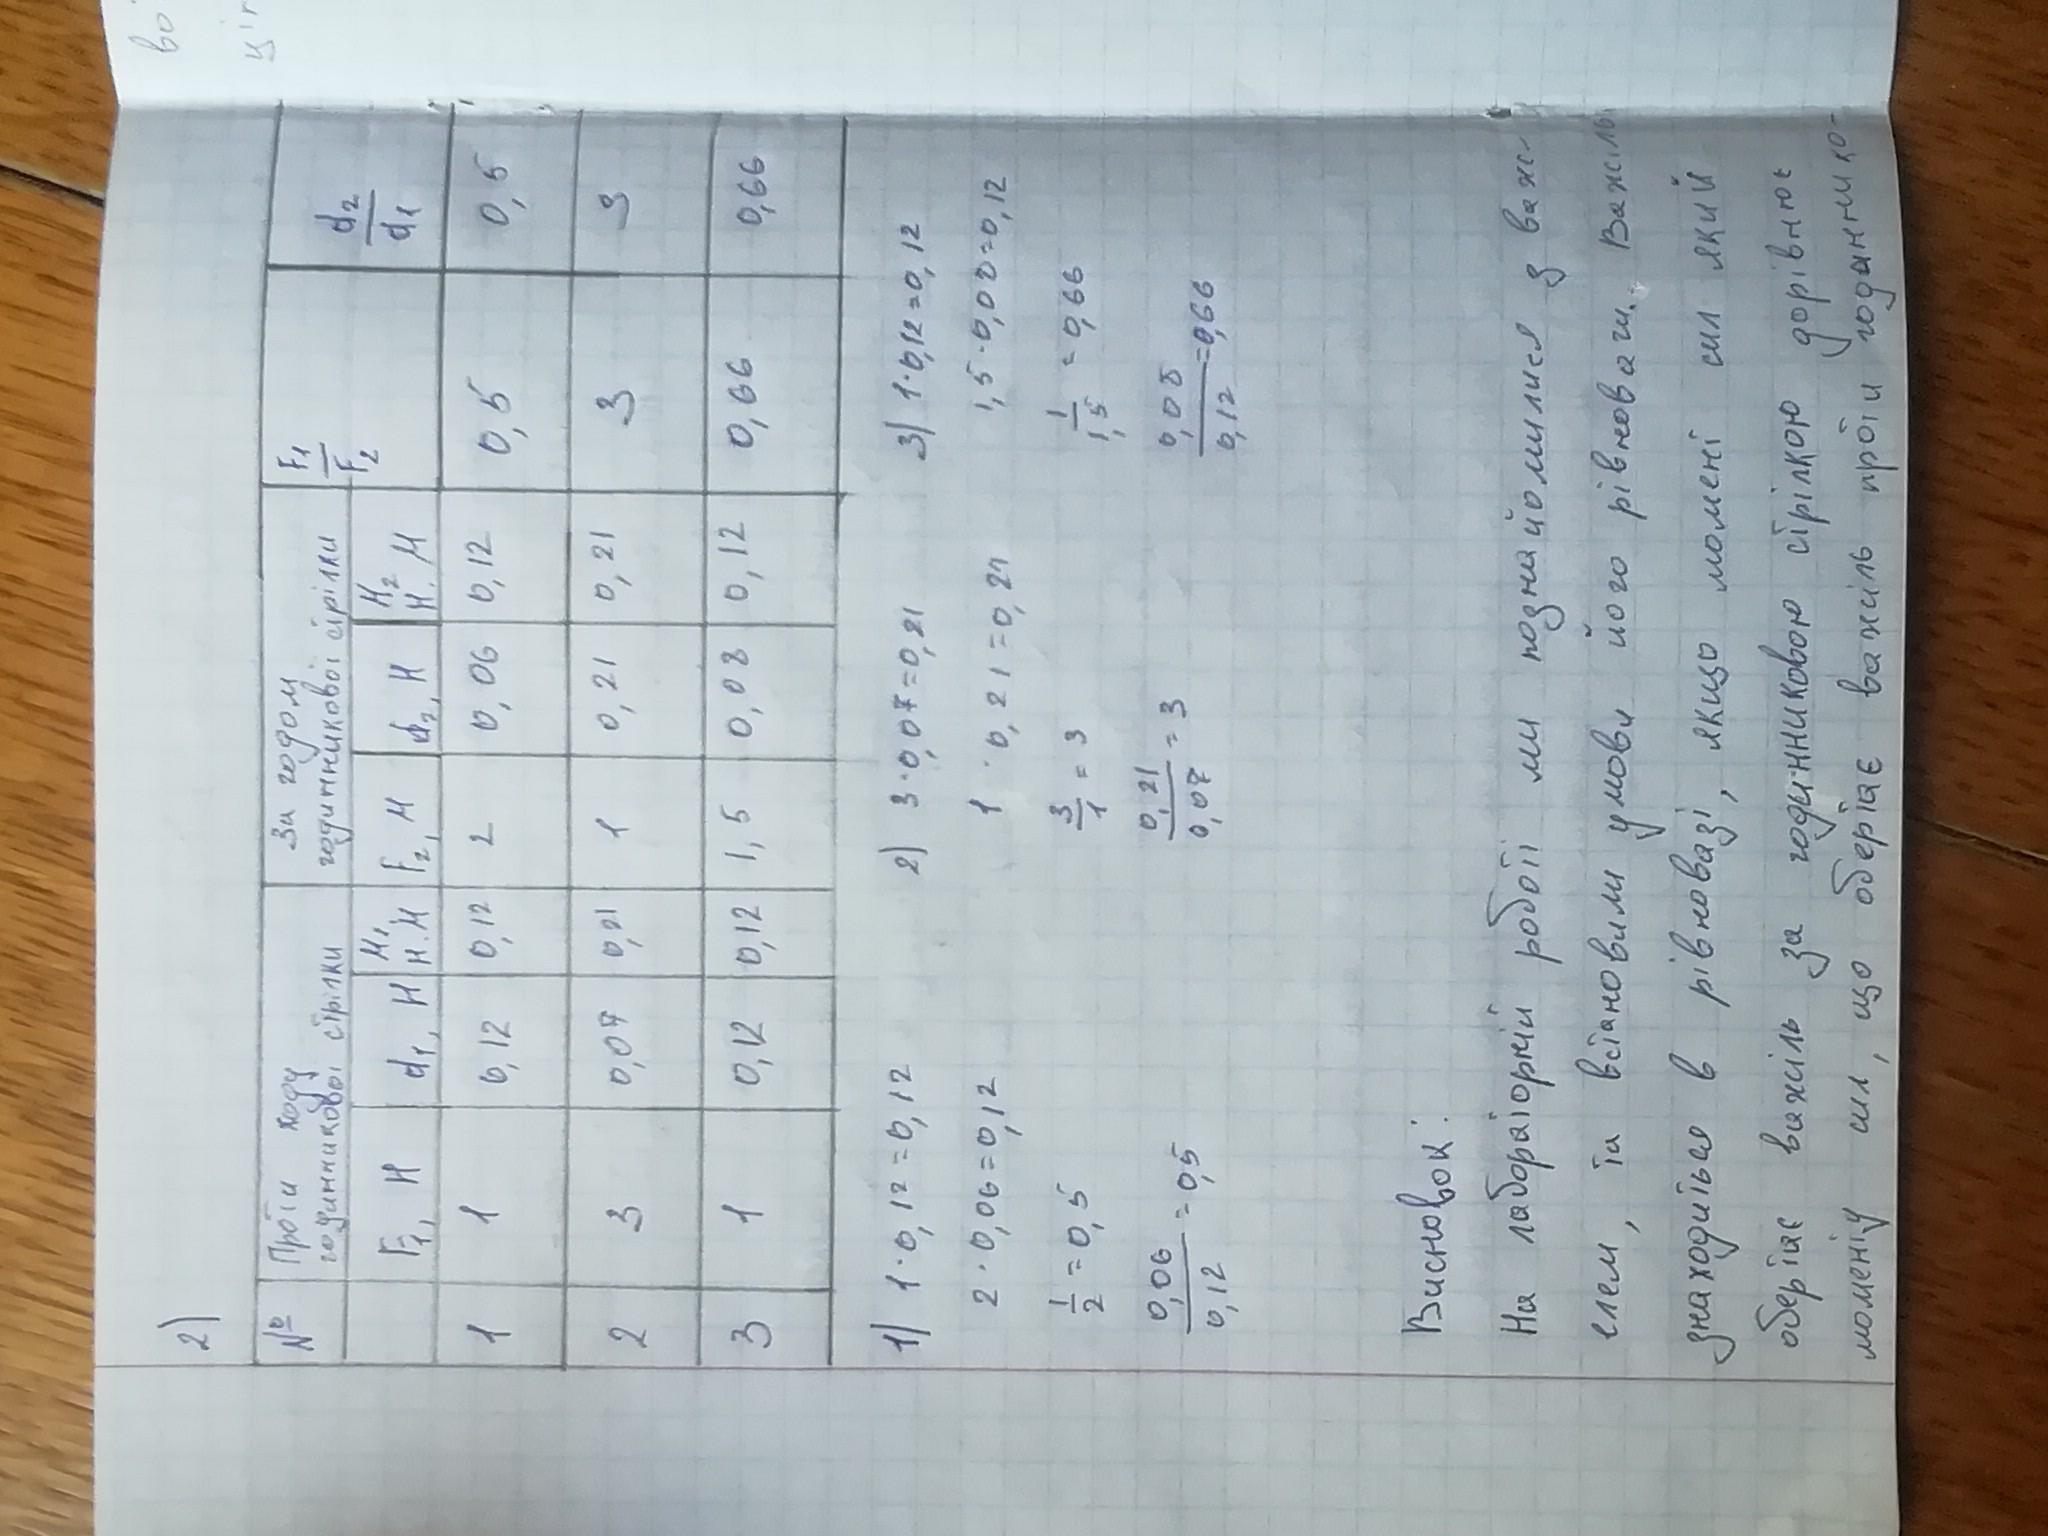 2)
№ Проти ходу годинникової стрілки За годом годинникової стрілки F₁/F₂ d₂/d₁
F₁, Н d₁, Н М₁, Н·М F₂, М d₂, Н М₂ Н·М
1 1 0,12 0,12 2 0,06 0,12 0,5 0,5
2 3 0,07 0,21 1 0,21 0,21 3 3
3 1 0,12 0,12 1,5 0,08 0,12 0,66 0,66
1) 1·0,12=0,12 2) 3·0,07=0,21 3) 1·0,12=0,12
2·0,06=0,12 1·0,21=0,21 1,5·0,08=0,12
1/2=0,5 3/1=3 1/1,5=0,66
0,06/0,12=0,5 0,21/0,07=3 0,08/0,12=0,66
Висновок:
На лабораторній роботі ми познайомилися з важ-
елем, та встановили умови його рівноваги. Важіль
знаходиться в рівновазі, якщо момент сил який
обертає важіль за годинниковою стрілкою дорівнює
моменту сил, що обертає важіль проти годаннико-